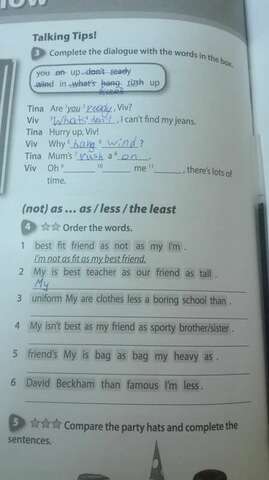 Talking Tips!
3 Complete the dialogue with the words in the box.
you on up don't ready
wind in what's hang rush up
Tina Are ¹you ²ready, Viv?
Viv I can't find my jeans.
Tina Hurry up, Viv!
Viv Why ⁵hang ⁶wind?
Tina Mum's ⁷rush a ⁸on.
Viv Oh ⁹______ ¹⁰______ me ¹¹______, there's lots of
time.
(not) as ... as / less / the least
4 ☆☆ Order the words.
1 best fit friend as not as my I'm .
I'm not as fit as my best friend.
2 My is best teacher as our friend as tall .
My
3 uniform My are clothes less a boring school than .
4 My isn't best as my friend as sporty brother/sister .
5 friend's My is bag as bag my heavy as .
6 David Beckham than famous I'm less .
5 ☆☆☆ Compare the party hats and complete the
sentences.